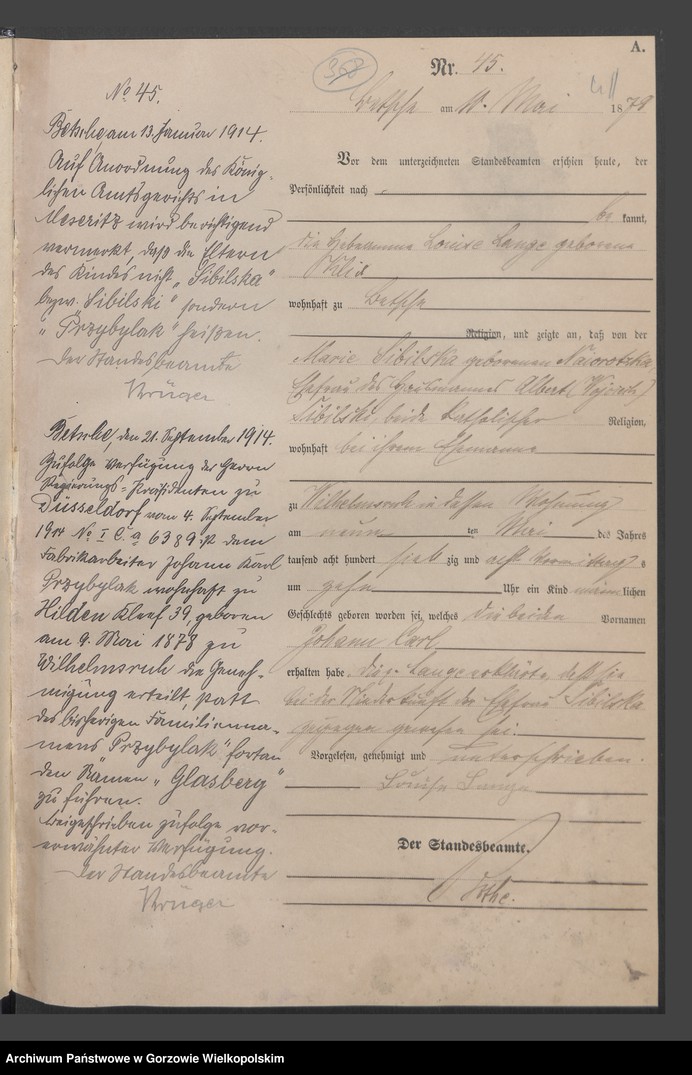 A.
368
Nr. 45.
Betsche am 11. Mai 1878
Vor dem unterzeichneten Standesbeamten erschien heute, der
Persönlichkeit nach
be kannt,
die Hebeamme Louise Lange geborene
wohnhaft zu Betsche
Religion, und zeigte an, daß von der
Marie Sibilska geborenen
Ehefrau des Albert (Wojciech)
Sibilski, beide katholischer Religion,
wohnhaft bei ihrem Ehemanne
zu Wilhelmsruh in dessen Wohnung
am neun ten Mai des Jahres
tausend acht hundert sieb zig und acht Vormittags
um zehn Uhr ein Kind männ lichen
Geschlechts geboren worden sei, welches die beiden Vornamen
Johann Carl
erhalten habe. Die p. Lange erklärte, daß sie
bei der Niederkunft der Ehefrau Sibilska
zugegen gewesen sei.
Vorgelesen, genehmigt und unterschrieben.
Louise Lange
Der Standesbeamte.
No 45.
Betsche, am 13. Januar 1914.
Auf Anordnung des König-
lichen Amtsgerichts in
Meseritz wird berichtigend
vermerkt, daß die Eltern
des Kindes nicht „Sibilska"
bezw. Sibilski" sondern
„Przybylak" heißen.
Der Standesbeamte
Krüger
Betsche, den 21. September 1914.
Zufolge Verfügung des Herrn
Regierungs-Präsidenten zu
Düsseldorf vom 4. September
1914 No I C. a 6389 ist dem
Fabrikarbeiter Johann Karl
Przybylak wohnhaft zu
Hilden Kleef 39, geboren
am 9. Mai 1878 zu
Wilhelmsruh die Geneh-
migung erteilt, statt
des bisherigen Familienna-
mens Przybylak" fortan
den Namen „Glasberg"
zu führen.
Beigeschrieben zufolge vor-
erwähnter Verfügung.
Der Standesbeamte
Krüger
Archiwum Państwowe w Gorzowie Wielkopolskim